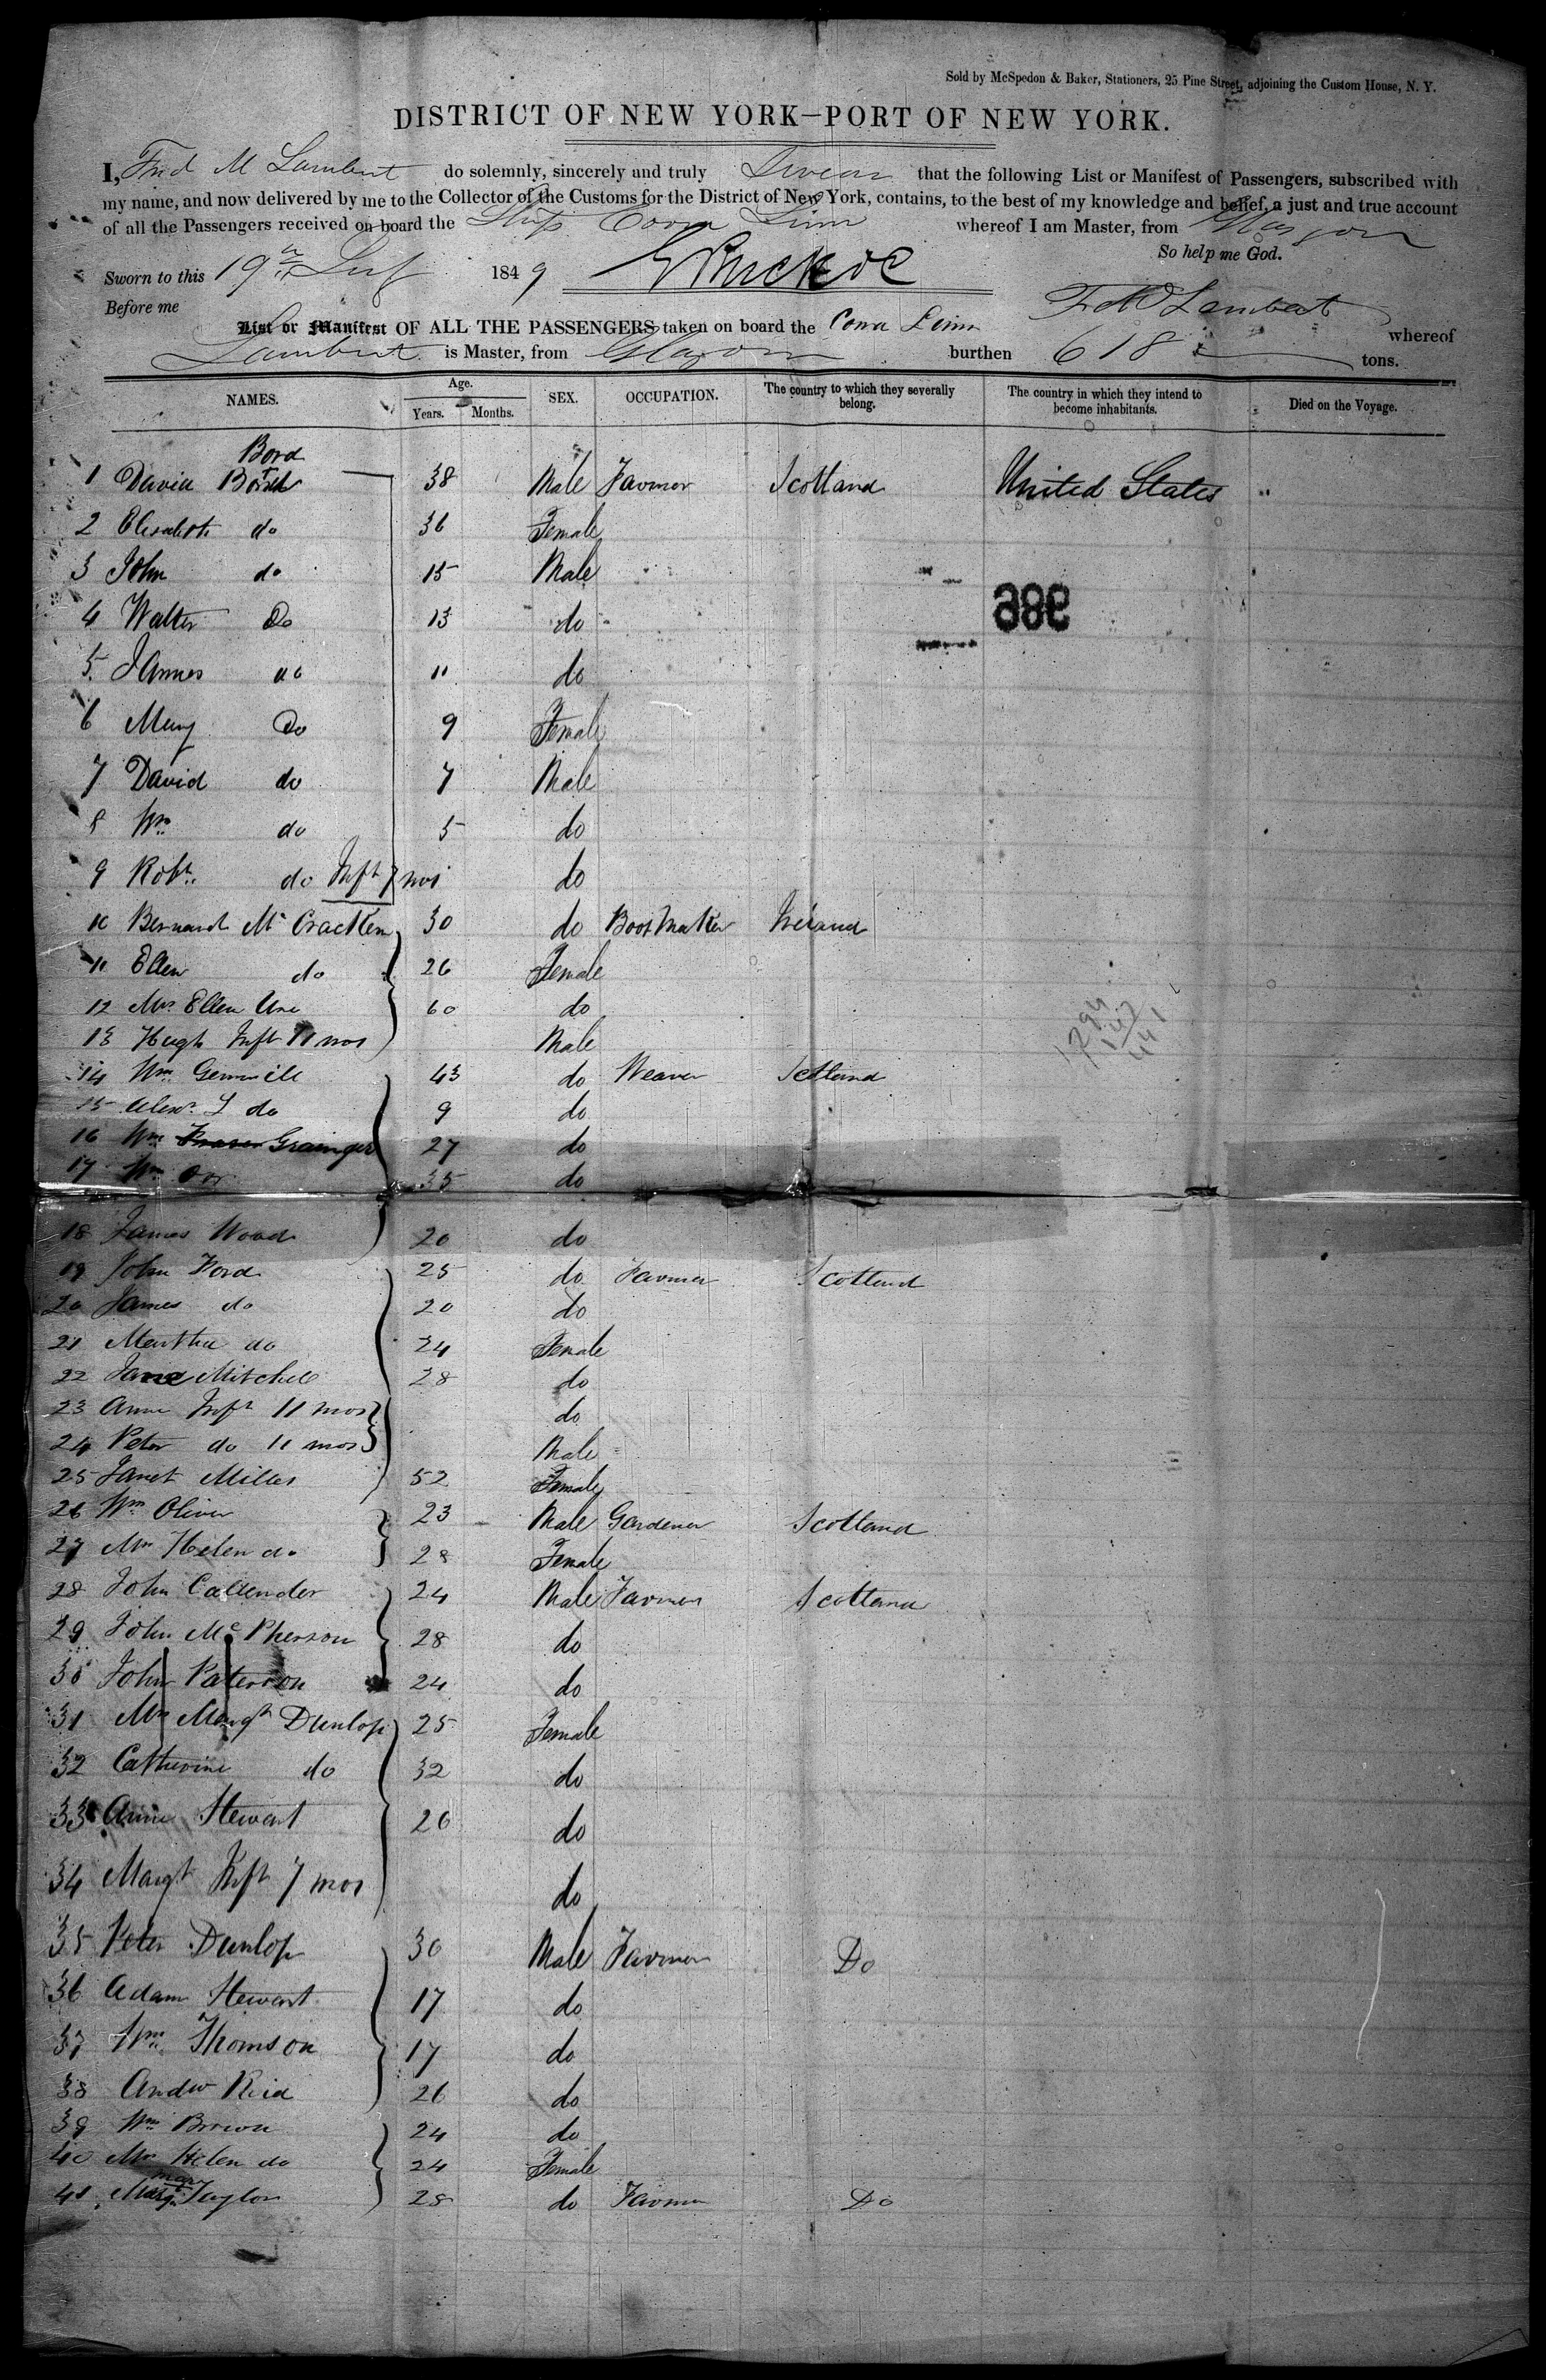 Sold by McSpedon & Baker, Stationers, 25 Pine Street, adjoining the Custom House, N. Y.
DISTRICT OF NEW YORK—PORT OF NEW YORK.
I, Fred M Lambert do solemnly, sincerely and truly Swear that the following List or Manifest of Passengers, subscribed with
my name, and now delivered by me to the Collector of the Customs for the District of New York, contains, to the best of my knowledge and belief, a just and true account
of all the Passengers received on board the Ship Cora Linn whereof I am Master, from Glasgow
So help me God.
Sworn to this 19th 1849
Before me
Lambert
List or Manifest OF ALL THE PASSENGERS taken on board the Cora Linn whereof
Lambert is Master, from Glasgow burthen 618 tons.
NAMES. Age. Years. Months. SEX. OCCUPATION. The country to which they severally belong. The country in which they intend to become inhabitants. Died on the Voyage.
Bord
1 David 38 Male Farmer Scotland United States "
2 Elisabeth do 36 Female
3 John do 15 Male
986
4 Walter Do 13 do
5 James do 11 do
6 Mary Do 9 Female
7 David do 7 Male
8 Wm do 5 do
9 Robt. do Inft 7 mos do
10 Bernard Mc Cracken 30 do Boot Maker Ireland
11 Ellen do 26 Female
12 Mrs Ellen Ure 60 do
13 Hugh Inft 11 mos Male
14 Wm Gemmill 43 do Weaver Scotland
15 Alexr. L do 9 do
16 Wm Fraser Grainger 27 do
17 Wm Orr 35 do
18 James Wood 20 do
19 John Ford 25 do Farmer Scotland
20 James do 20 do
21 Martha do 24 Female
22 Jane Mitchell 28 do
23 Ann Inft 11 mos do
24 Peter do 11 mos Male
25 Janet Miller 52 Female
26 Wm Oliver 23 Male Gardener Scotland
27 Mrs Helen do 28 Female
28 John Callender 24 Male Farmer Scotland
29 John McPherson 28 do
30 John Paterson 24 do
31 Mrs Margt Dunlop 25 Female
32 Catherine do 32 do
33 Anne Stewart 26 do
34 Margt Inft 7 mos do
35 Peter Dunlop 30 Male Farmer Do
36 Adam Stewart 17 do
37 Wm Thomson 17 do
38 Andw Reid 26 do
39 Wm Brown 24 do
40 Mrs Helen do 24 Female
41 Taylor 28 do Farmer Do